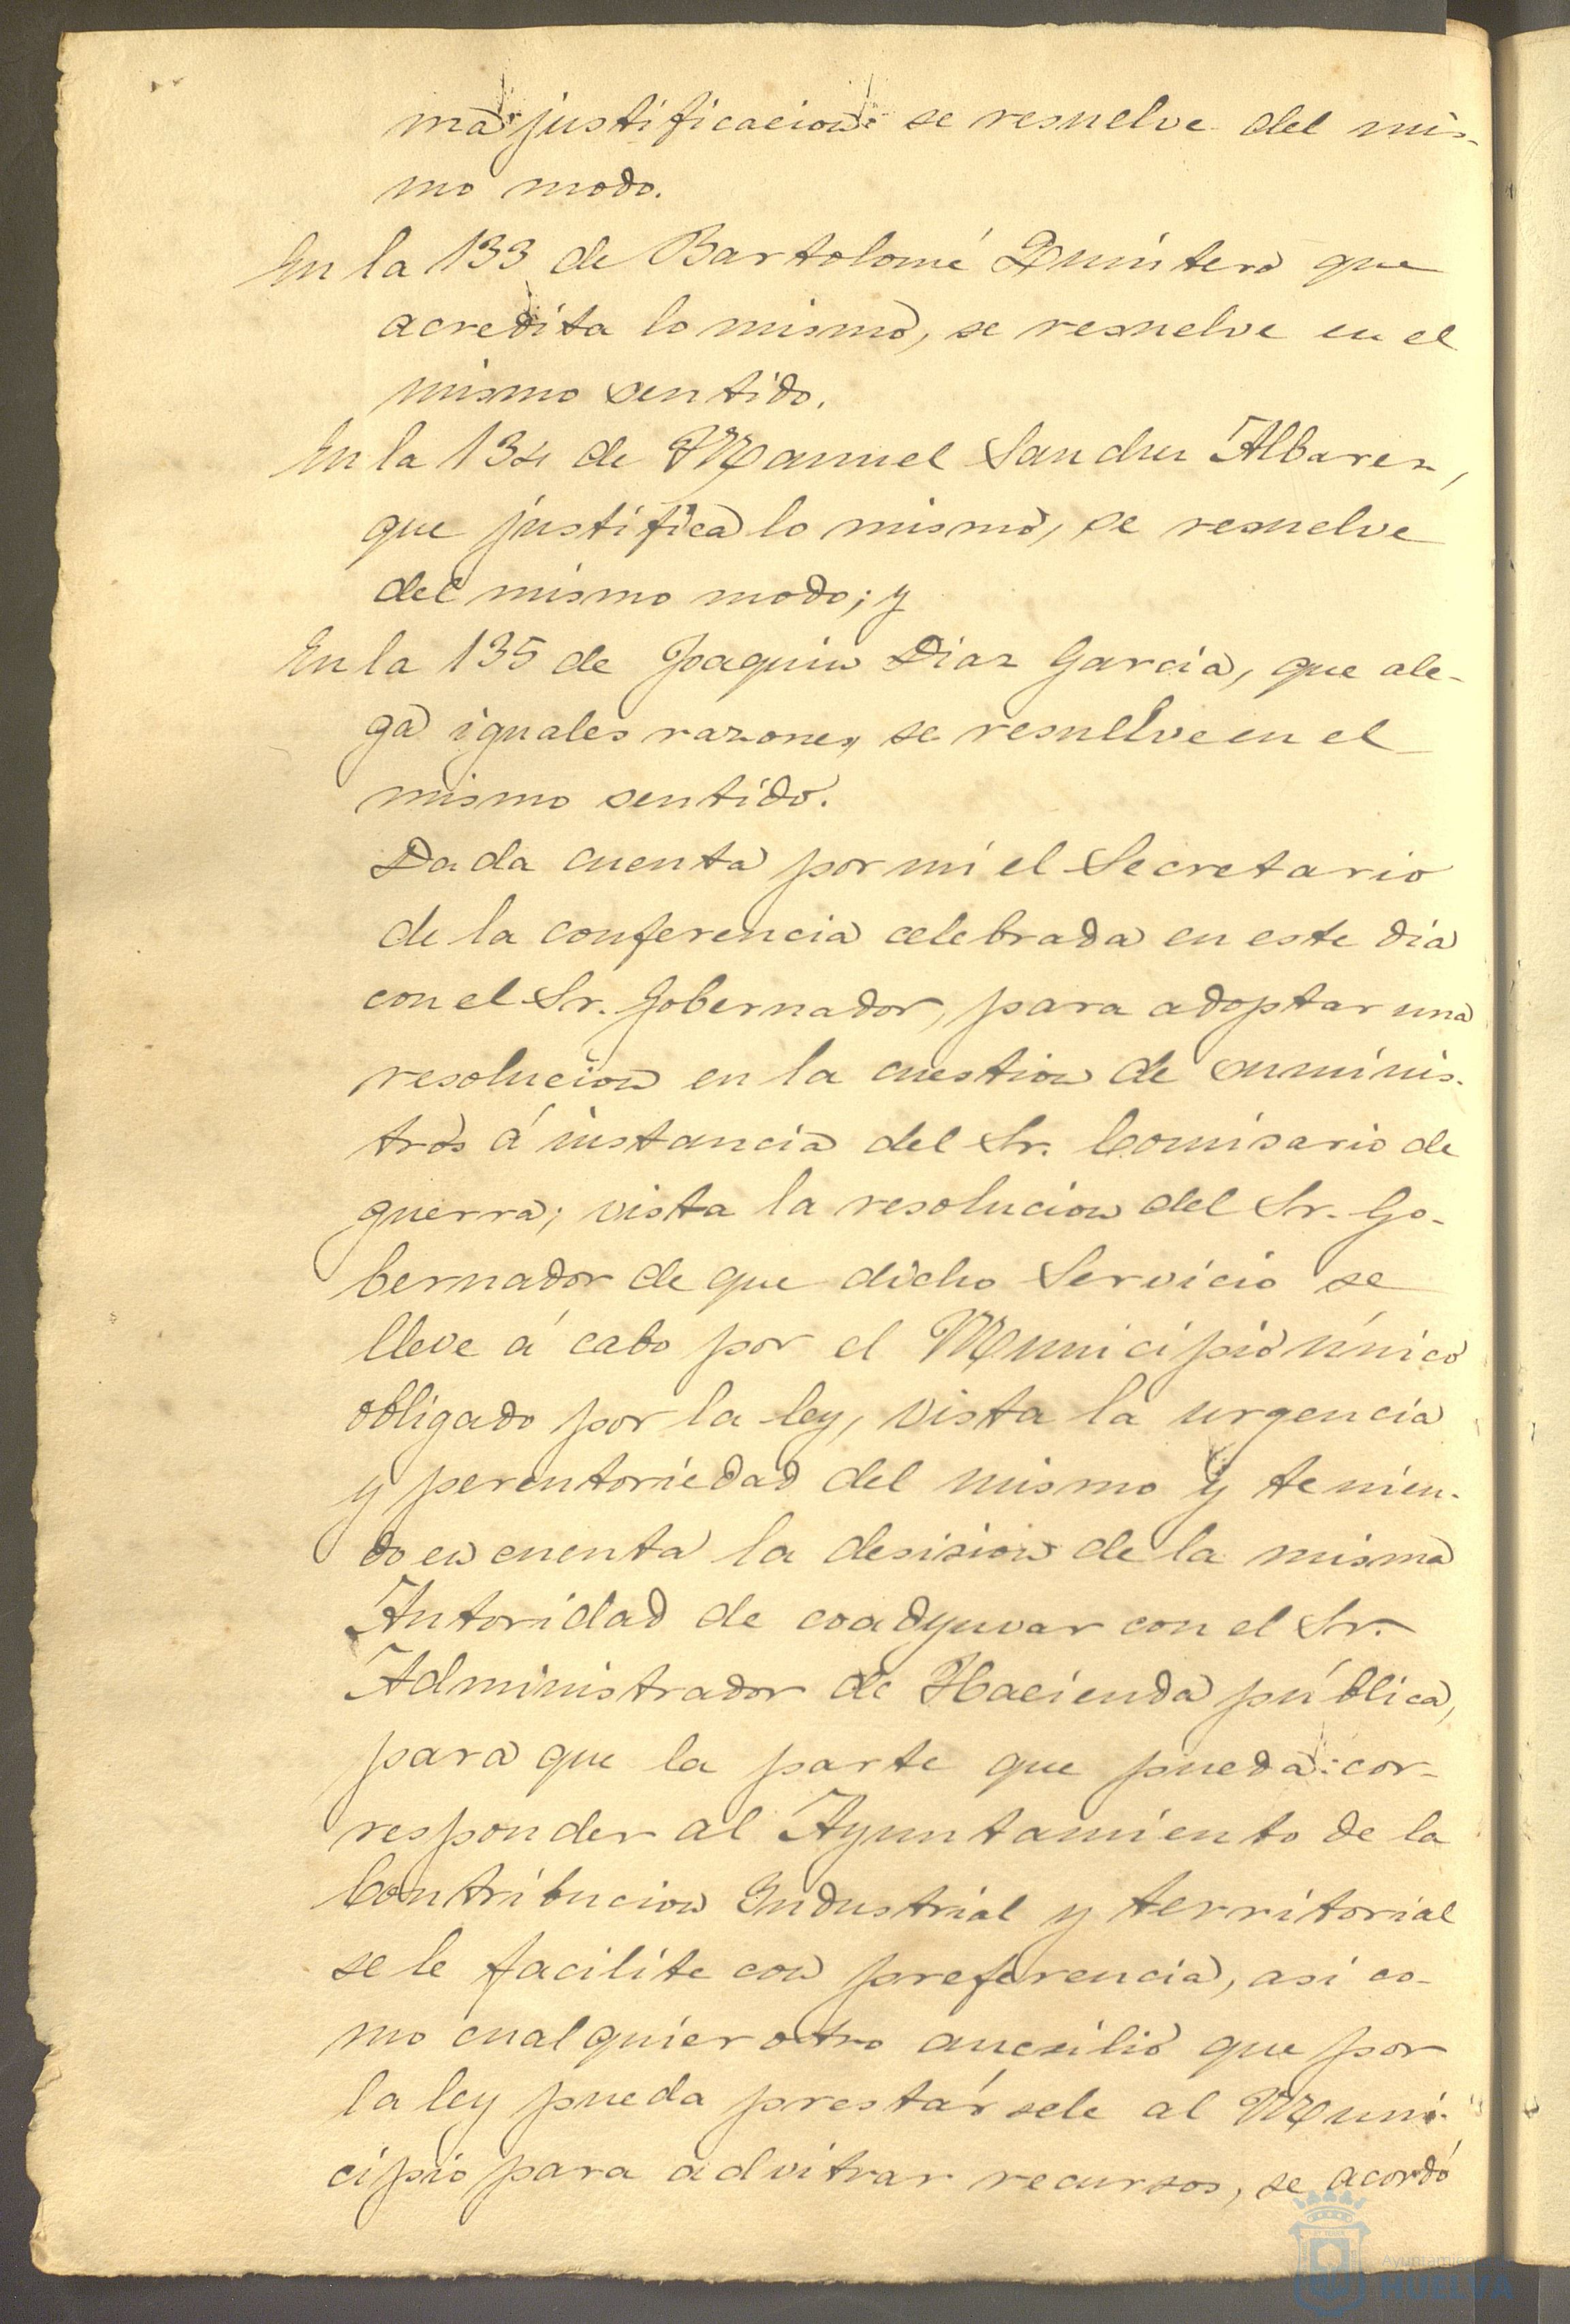 ma justificacion se resuelve del mis-
mo modo.
En la 133 de Bartolomé Quintero que
acredita lo mismo, se resuelve en el
mismo sentido.
En la 134 de Manuel Sanchez Albarez,
que justifica lo mismo, se resuelve
del mismo modo; y
En la 135 de Joaquin Diaz Garcia, que ale-
ga iguales razones, se resuelve en el
mismo sentido.
Dada cuenta por mi el Secretario
de la conferencia celebrada en este dia
con el Sr. Gobernador, para adoptar una
resolucion en la cuestion de suminis-
tros á instancia del Sr. Comisario de
guerra; vista la resolucion del Sr. Go-
bernador de que dicho Servicio se
lleve á cabo por el Municipio único
obligado por la ley, vista la urgencia
y perentoriedad del mismo y tenien-
do en cuenta la desision de la misma
Autoridad de coadyuvar con el Sr.
Administrador de Hacienda pública,
para que la parte que pueda cor-
responder al Ayuntamiento de la
Contribucion Industrial y territorial
se le facilite con preferencia, asi co-
mo cualquier otro aucsilio que por
la ley pueda prestársele al Muni-
cipio para advitrar recursos, se acordó
Ayuntamie
HUELVA